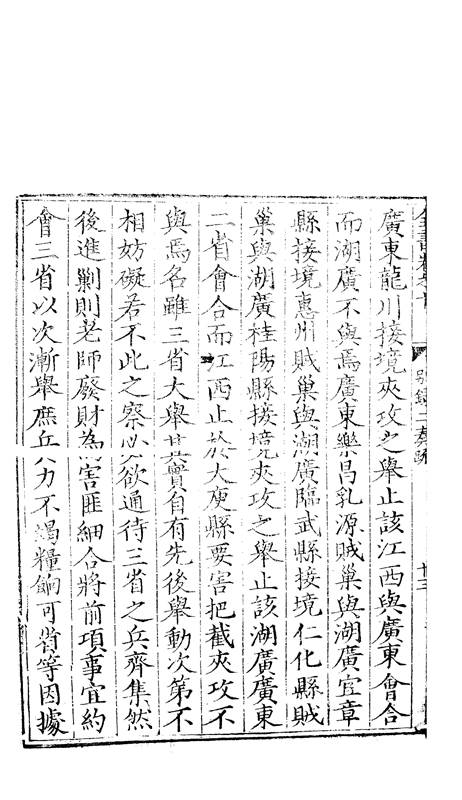 廣東龍川接境夾攻之舉止該江西與廣東會合
而湖廣不與焉廣東樂昌乳源賊巢與湖廣宜章
縣接境惠州賊巢與湖廣臨武縣接境仁化縣賊
巢與湖廣桂陽縣接境夾攻之舉止該湖廣廣東
二省會合而江西止於大庾縣要害把截夾攻不
與焉名雖三省大舉其實自有先後舉動次第不
相妨礙若不此之察必欲通待三省之兵齊集然
後進剿則老師廢財為害匪細合將前項事宜約
會三省以次漸舉庶兵力不竭糧餉可省等因據